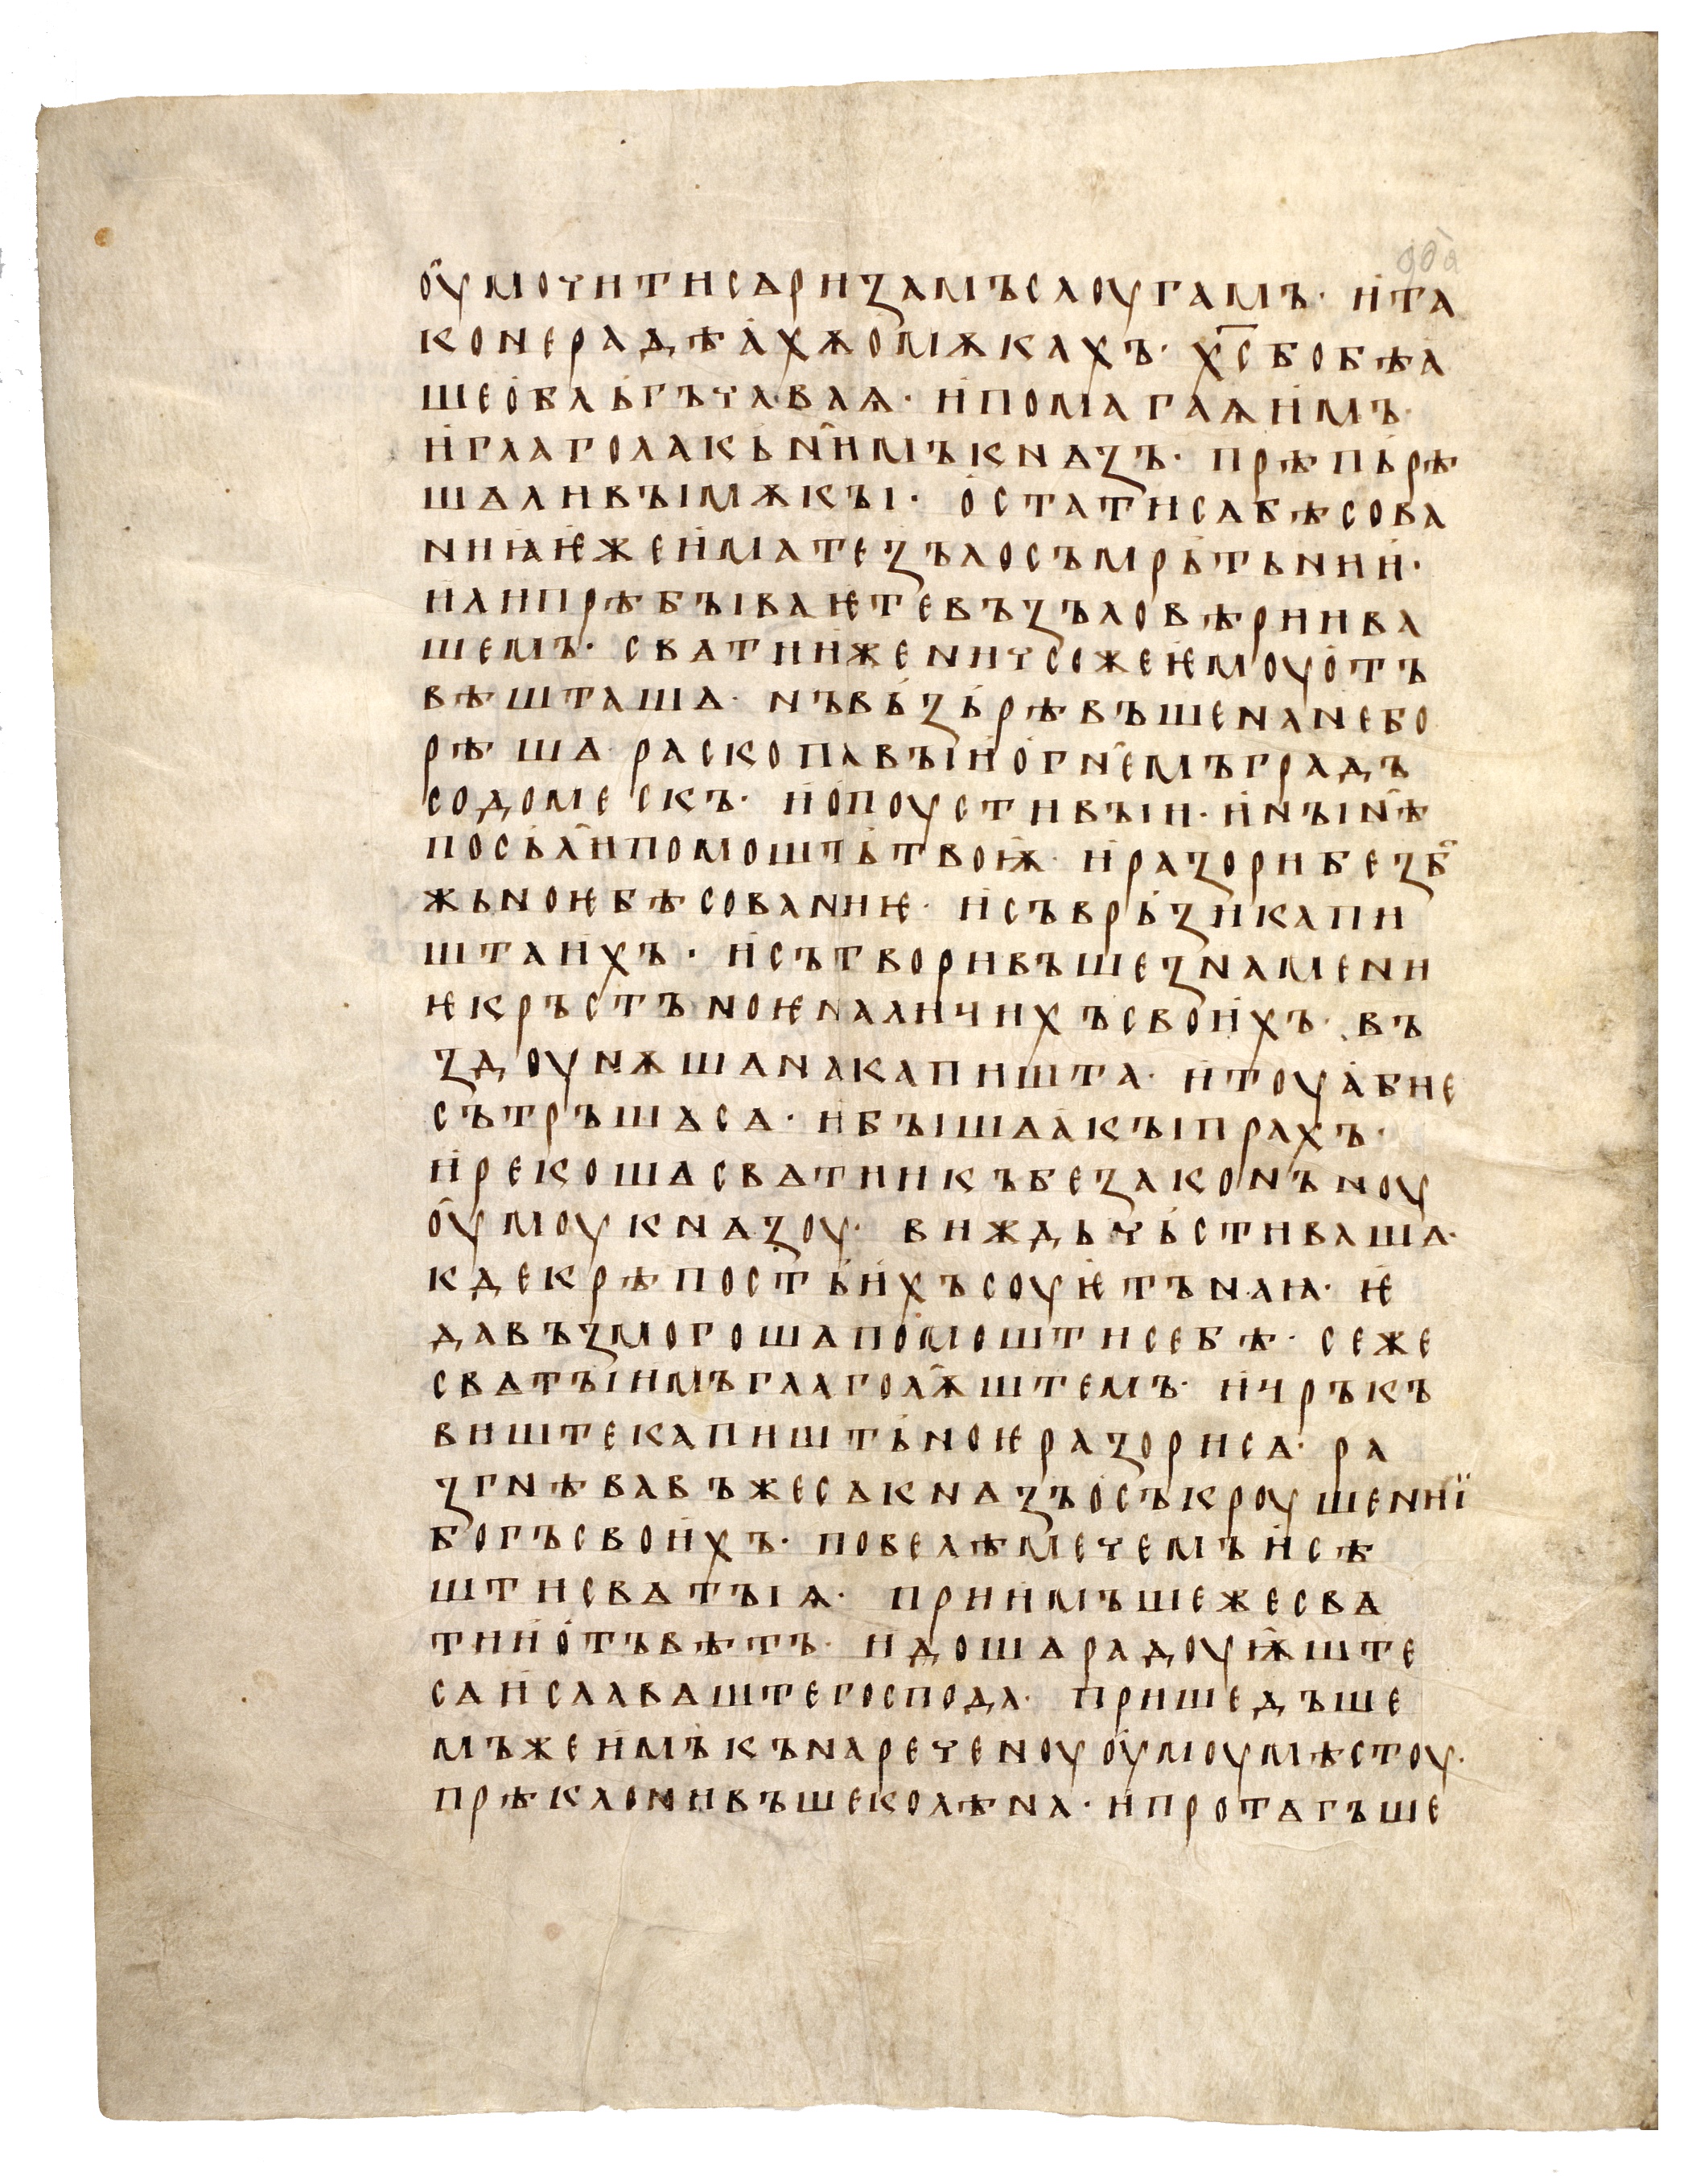 оу҆мочитисѧризамъслоугамъ· и҆та
конерадѣа҆хѫомѫкахъ· х҃сбобѣа҆
шео҆бльгъчаваѩ· и҆помагаѩи҆мъ·
и҆глаголакън҄имъкнѧзъ· прѣпьрѣ
шаливъімѫкъі· о҆статисѧбѣсова
ниꙗѥжеи҆матезълосъмрьтьнии҆·
илипрѣбъіваѥтевъзъловѣриива
шемъ· свѧтииженичсожеѥмоуо҆тъ
вѣшташа· нъвьзьрѣвъшенанебо
рѣша раскопавъіио҆гн҄емъградъ
содомескъ· и҆опоустивъіи· и҆нъін҄ѣ
посъл҄ипомоштьтвоѭ· и҆разорибезб҃
жьноѥбѣсованиѥ· и҆съврьзикапи
штаи҆хъ· и҆сътворивъшезнамени
ѥкръстъноѥналичихъсвои҆хъ· въ
здоунѫшанакапишта· итоуа҆бие
сътръшасѧ· ибъішаа҆къіпрахъ·
и҆рекошасвѧтиикъбезаконъноу
оу҆моукнѧзоу· виждьчьстиваша·
кдекрѣпостьи҆хъсоуѥтънаꙗ· ѥ
давъзмогошапомоштисебѣ· сеже
свѧтъіимъглагол҄ѭштемъ· и҆чръкъ
виштекапиштьноѥразорисѧ· ра
згнѣвавъжесѧкнѧзъо҆съкроушениї
богъсвои҆хъ· повелѣмечемъи҆сѣ
штисвѧтъіѩ· приимъшежесвѧ
тиио҆тъвѣтъ· идошарадоуѭште
сѧи҆славѧштегоспода· пришедъше
мъжеи҆мъкънареченоуоу҆моумѣстоу·
прѣклонивъшеколѣна· и҆протѧгъше